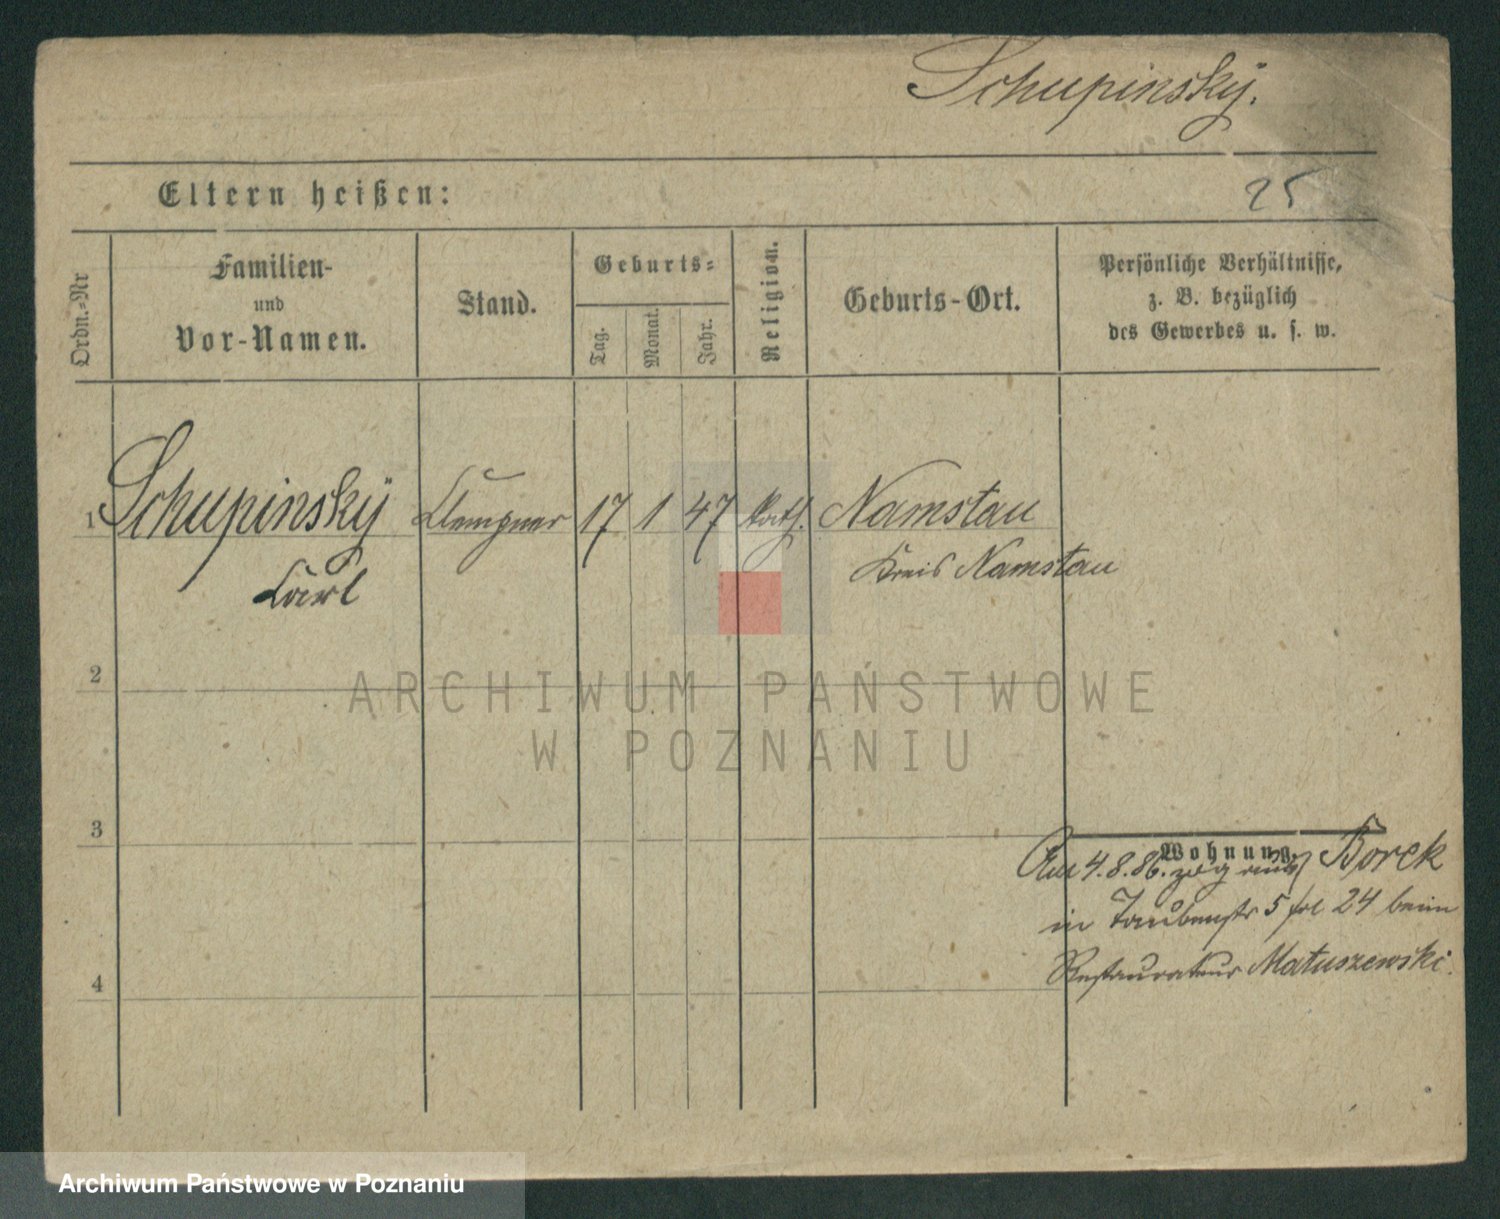 Schupinský.
Eltern heißen:
25
Ordn.-Nr
Familien-
und
Vor-Namen.
Stand.
Geburts-
Tag.
Monat.
Jahr.
Religion.
Geburts-Ort.
Persönliche Verhältnisse,
z. B. bezüglich
des Gewerbes u. s. w.
1 Schupinský Klempner 17 1 47 Kath. Namstau
Carl Kreis Namstau
2
ARCHIWUM PAŃSTWOWE
W POZNANIU
3
Wohnung
Am 4.8.86. zog aus Borek
in Taubenstr 5 frl 24 beim
Restaurateur Matuszewski.
4
Archiwum Państwowe w Poznaniu